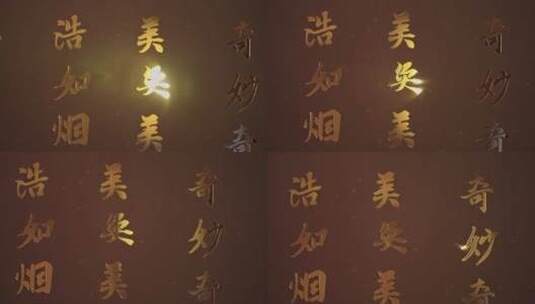 奇妙奇
美奂美
浩如烟
奇妙奇
美奂美
浩如烟
奇妙奇
美奂美
浩如烟
奇妙奇
美奂美
浩如烟